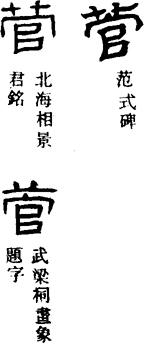 菅
范式碑
菅
北海相景
君銘
菅
武梁祠畫象
題字